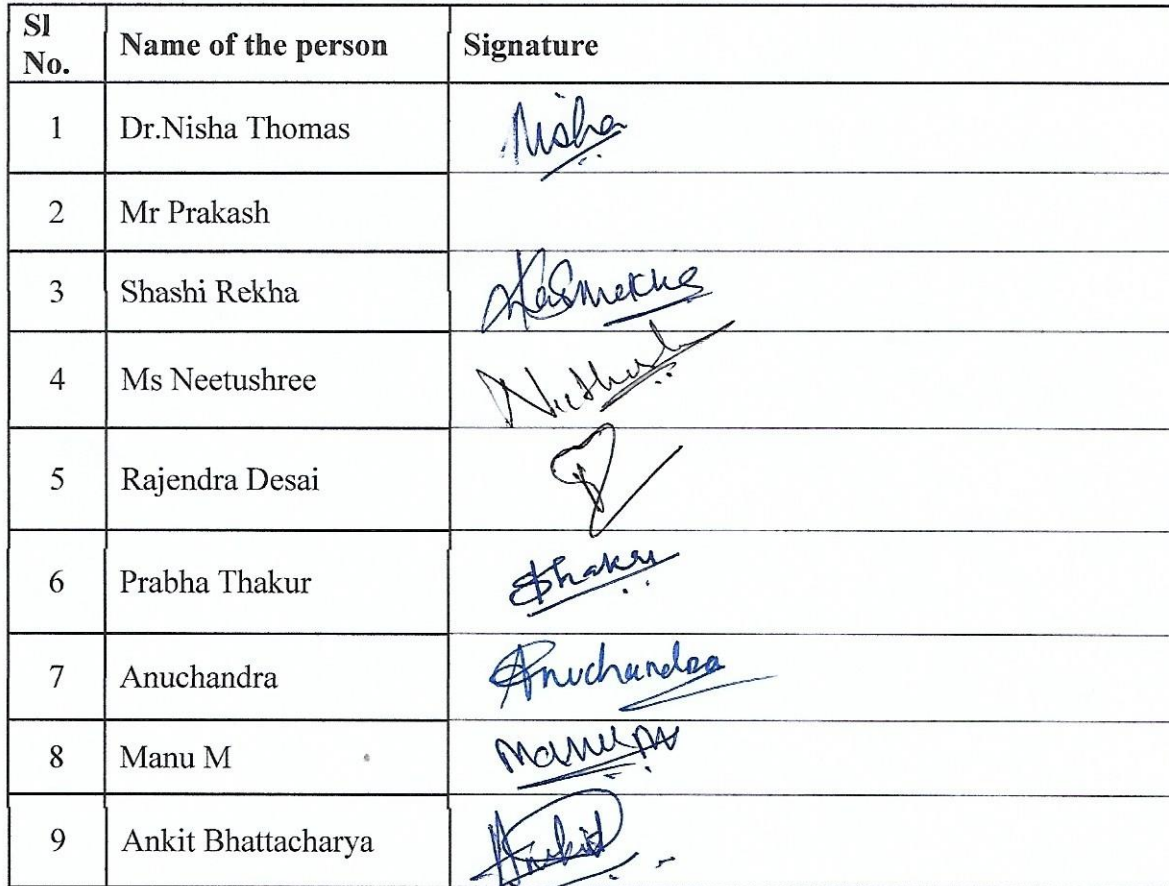 Sl No. Name of the person Signature
1 Dr.Nisha Thomas Nisha
2 Mr Prakash
3 Shashi Rekha
4 Ms Neetushree
5 Rajendra Desai
6 Prabha Thakur
7 Anuchandra Anuchandra
8 Manu M Manu M
9 Ankit Bhattacharya Ankit